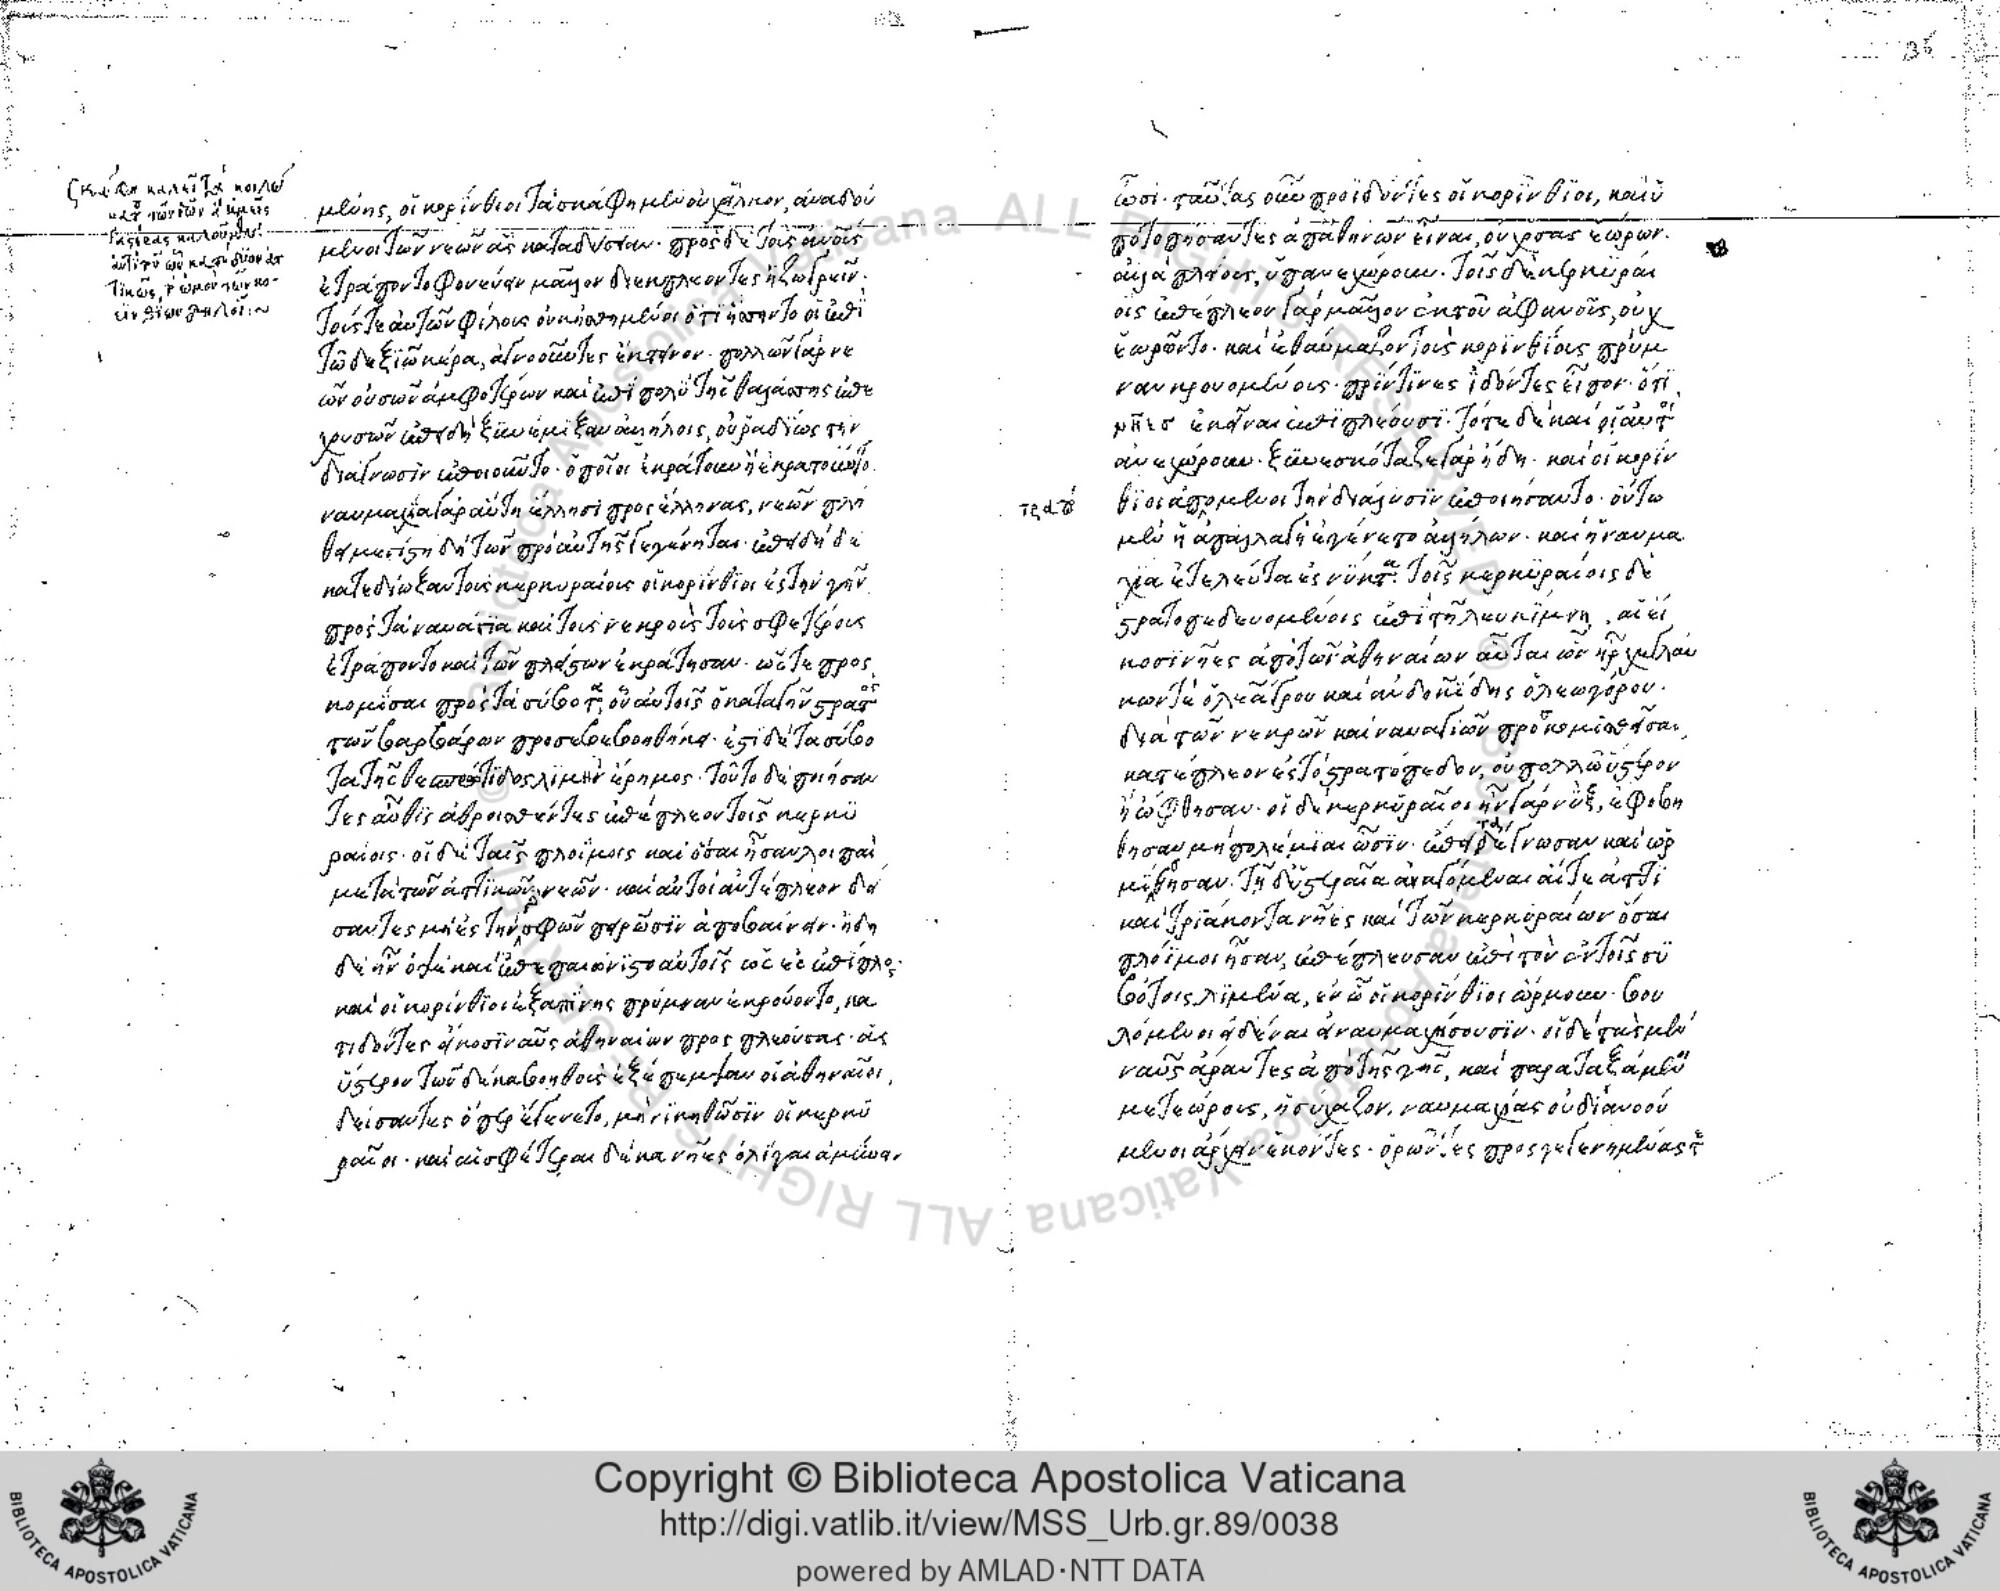 μένης, οἱ κορίνθιοι τὰ σκάφη μὲν οὐχ εἷλκον, ἀναδού
μενοι τῶν νεῶν ἃς καταδύσειαν· πρὸς δὲ τοὺς ἀν̅ο̅υ̅ς
ἐτράποντο φονεύειν μᾶλλον διεκπλέοντες ἢ ζωγρεῖν·
τούς τε αὐτῶν φίλους οὐκ ἠσθημένοι ὅτι ἥσσηντο οἱ ἐπὶ
τῷ δεξιῷ κέρα, ἀγνοοῦντες ἔκτεινον· πολλῶν γὰρ νε
ῶν οὐσῶν ἀμφοτέρων καὶ ἐπὶ πολὺ τῆς θαλάσσης ἐπε
χουσῶν ἐπειδὴ ξυνέμιξαν ἀλλήλοις, οὐ ῥαδίως τὴν
διάγνωσιν ἐποιοῦντο· ὁποῖοι ἐκράτουν ἢ ἐκρατοῦντο·
ναυμαχία γὰρ αὕτη ἕλλησι πρὸς ἕλληνας, νεῶν πλή
θει μεγίστη δὴ τῶν πρὸ αὐτῆς γεγένηται· ἐπειδὴ δὲ
κατεδίωξαν τοὺς κερκυραίους οἱ κορίνθιοι ἐς τὴν γῆν
πρὸς τὰ ναυάγια καὶ τοὺς νεκροὺς τοὺς σφετέρους
ἐτράποντο καὶ τῶν πλείστων ἐκράτησαν· ὥστε προς
κομίσαι πρὸς τὰ σύβοτα, οὗ αὐτοῖς ὁ κατὰ γῆν στρατὸς
τῶν βαρβάρων προσεβεβοηθήκει· ἔστι δὲ τὰ σύβο
τα τῆς θεσπρωτίδος λιμὴν ἔρημος· τοῦτο δὲ ποιήσαν
τες αὖθις ἀθροισθέντες ἐπέπλεον τοῖς κερκυ
ραίοις· οἱ δὲ ταῖς πλοΐμοις καὶ ὅσαι ἦσαν λοιπαὶ
μετὰ τῶν ἀττικῶν νεῶν· καὶ αὐτοὶ ἀντέπλεον δεί
σαντες μὴ ἐς τὴν γῆν σφῶν πειρῶσιν ἀποβαίνειν· ἤδη
δὲ ἦν ὀψὲ καὶ ἐπεπαιώνιστο αὐτοῖς ὡς ἐς ἐπίπλουν·
καὶ οἱ κορίνθιοι ἐξαπίνης πρύμναν ἐκρούοντο, κα
τιδόντες εἴκοσι ναῦς ἀθηναίων προς πλεούσας· ἃς
ὕστερον τῶν δέκα βοηθοὺς ἐξέπεμψαν οἱ ἀθηναῖοι,
δείσαντες ὅπερ ἐγένετο, μὴ νικηθῶσιν οἱ κερκυ
ραῖοι· καὶ αἱ σφέτεραι δέκα νῆες ὀλίγαι ἀμύνειν
ὦσι· ταύτας οὖν προϊδόντες οἱ κορίνθιοι, καὶ ὑ
ποτοπήσαντες ἀπ' ἀθηνῶν εἶναι, οὐχ ὅσας ἑώρων·
ἀλλὰ πλείους, ὑπανεχώρουν· τοῖς δὲ κερκυραί
οις ἐπέπλεον γὰρ μᾶλλον ἐκ τοῦ ἀφανοῦς, οὐχ
ἑωρῶντο· καὶ ἐθαύμαζον τοὺς κορινθίους πρύμ
ναν κρουομένους· πρίν τινες ἰδόντες εἶπον· ὅτι
νῆες ἐκεῖναι ἐπιπλέουσι· τότε δὲ καὶ αὐτοὶ
ἀνεχώρουν· ξυνεσκόταζε γὰρ ἤδη· καὶ οἱ κορίν
θιοι ἀπομένοι τὴν διάλυσιν ἐποιήσαντο· οὕτω
μὲν ἡ ἀπαλλαγὴ ἐγένετο ἀλλήλων· καὶ ἡ ναυμα
χία ἐτελεύτα ἐς νύκτα. τοῖς κερκυραίοις δὲ
στρατοπεδευομένοις ἐπὶ τῇ λευκίμνῃ, αἱ εἴ
κοσι νῆες ἀπὸ τῶν ἀθηναίων αὗται ὧν ἦρχε γλαύ
κων τε ὁ λεάγρου καὶ ἀνδοκίδης ὁ λεωγόρου·
διὰ τῶν νεκρῶν καὶ ναυαγίων προσκομισθεῖσαι,
κατέπλεον ἐς τὸ στρατόπεδον, οὐ πολλῷ ὕστερον
ἢ ὤφθησαν· οἱ δὲ κερκυραῖοι ἦν γὰρ νὺξ, ἐφοβή
θησαν μὴ πολέμιαι ὦσιν· ἔπειτα δὲ ἔγνωσαν καὶ ὡρ
μίσθησαν· τῇ δ' ὑστεραίᾳ ἀναγόμεναι αἵ τε ἀττι
καὶ τριάκοντα νῆες καὶ τῶν κερκυραίων ὅσαι
πλόϊμοι ἦσαν, ἐπέπλευσαν ἐπὶ τὸν ἐν τοῖς συ
βότοις λιμένα, ἐν ᾧ οἱ κορίνθιοι ὥρμουν· βου
λόμενοι εἰδέναι εἰ ναυμαχήσουσιν· οἱ δὲ τὰς μὲν
ναῦς ἄραντες ἀπὸ τῆς γῆς, καὶ παραταξάμενοι
μετεώρους, ἡσύχαζον, ναυμαχίας οὐ διανοού
μενοι ἄρχειν ἑκόντες· ὁρῶντες προςγεγενημένας τε